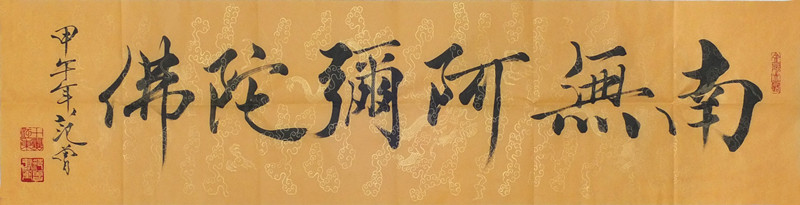 南無阿彌陀佛
甲午年范曾